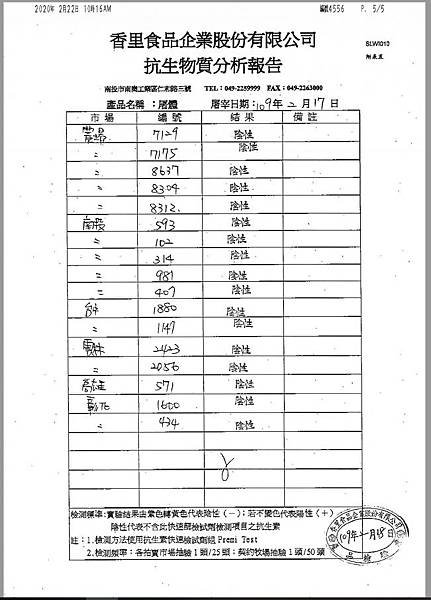 2020年 2月22日 10時16AM 編號4556 P. 5/5
香里食品企業股份有限公司
抗生物質分析報告
南投市南崗工業區仁和路三號 TEL:049-2259999 FAX:049-2263000
產品名稱:屠體 屠宰日期:109年二月17日
市場 編號 結果 備註
農場 7129 陰性
〃 7175 陰性
〃 8637 陰性
〃 8304 陰性
〃 8312 陰性
南投 593 陰性
〃 102 陰性
〃 314 陰性
〃 981 陰性
〃 407 陰性
台中 1880 陰性
〃 1147 陰性
雲林 2423 陰性
〃 2056 陰性
高雄 571 陰性
彰化 1600 陰性
〃 434 陰性
檢測標準:實驗結果由紫色轉黃色代表陰性(-);若不變色代表陽性(+)
陰性代表不含此快速篩檢試劑檢測項目之抗生素
註:1.檢測方法使用抗生素快速檢測試劑組 Premi Test
2.檢測頻率:各拍賣市場抽驗1頭/25頭;契約牧場抽驗1頭/50頭
香里食品企業股份有限公司
109年二月18日